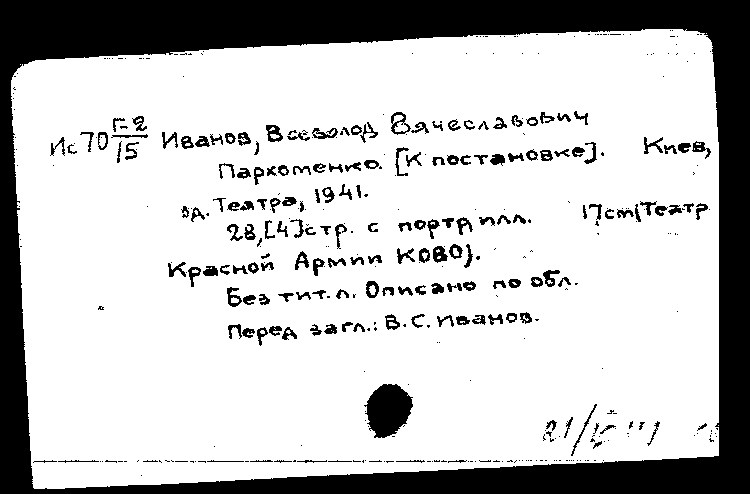 Ис 70 Г-2/15 Иванов, Всеволод Вячеславович
Пархоменко. [К постановке]. Киев,
зд. Театра, 1941.
28,[4]стр. с портр, илл. 17cm(Театр
Красной Армии КОВО).
Без тит.л. Описано по обл.
Перед загл.: В.С.Иванов.
21/